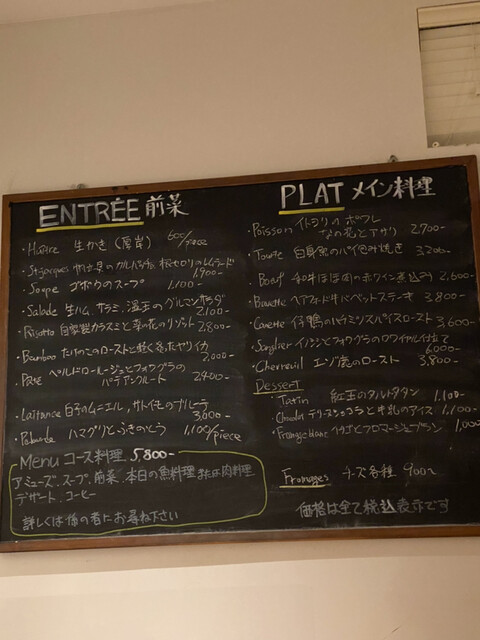 ENTRÉE 前菜
・Huître 生かき (厚岸) 600/piece
・St Jacques 帆立貝のカルパッチョ 根セロリのレムラード 1,900-
・Soupe ゴボウのスープ 1,100-
・Salade 生ハム、サラミ、温玉のグルマンサラダ 2,100-
・Risotto 自家製カラスミと菜の花のリゾット 2,800-
・Bambou たけのこのローストと軽く炙ったヤリイカ 2,000-
・Pâté ペルドロールージュとフォワグラの
パテアンクルート 2,400-
・Laitance 白子のムニエル、サトイモのブルーテ 3,000-
・Palourde ハマグリとふきのとう 1,100/piece
Menu コース料理 5,800-
アミューズ、スープ、前菜、本日の魚料理または肉料理
デザート、コーヒー
詳しくは係の者にお尋ね下さい
PLAT メイン料理
・Poisson イトヨリのポワレ
なの花とアサリ 2,900-
・Tourte 白身魚のパイ包み焼き 3,200-
・Boeuf 和牛ほほ肉の赤ワイン煮込み 2,600-
・Bavette ヘアフォード牛バベットステーキ 3,800-
・Canette 仔鴨のハチミツスパイスロースト 3,600-
・Sanglier イノシシとフォワグラのロワイヤル仕立て
6,000-
・Chevreuil エゾ鹿のロースト 3,800-
Dessert
・Tatin 紅玉のタルトタタン 1,100-
・Chocolat テリーヌショコラと牛乳のアイス 1,100-
・Fromage blanc イチゴとフロマージュブラン 1,000
Fromages チーズ各種 900〜
価格は全て税込表示です